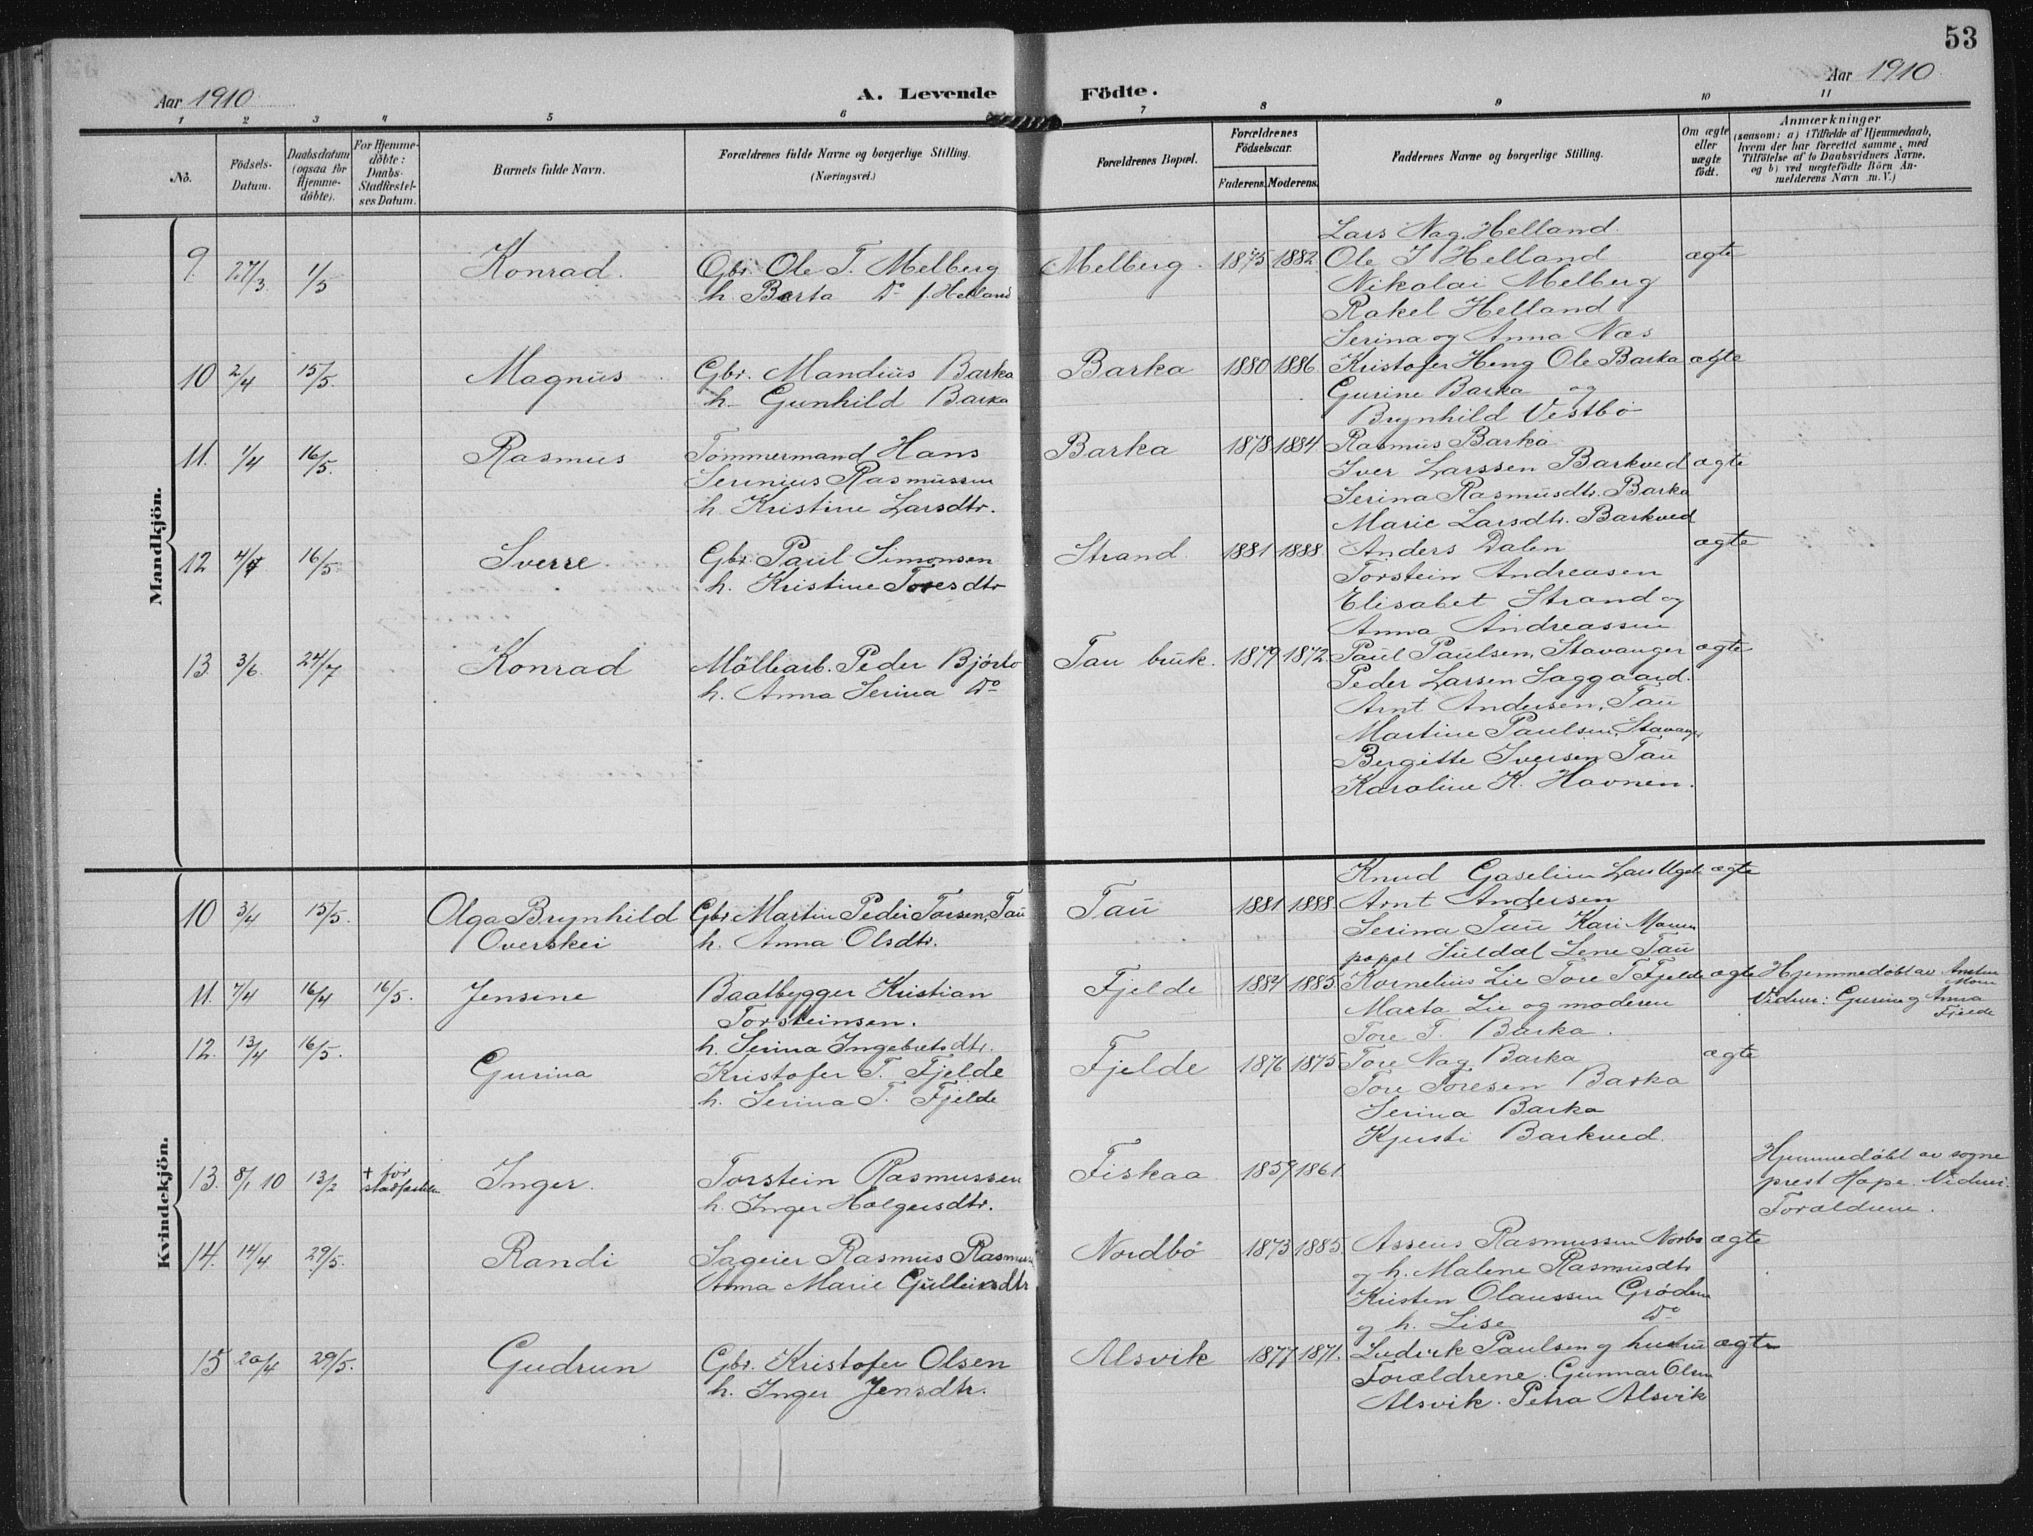 53
Aar 1910
A. Levende Födte.
Aar 1910
1 2 3 4 5 6 7 8 9 10 11
No.
Födsels-Datum.
Daabsdatum (ogsaa for Hjemmedöbte).
For Hjemmedöbte: Daabs-Stadfæstelses Datum.
Barnets fulde Navn.
Forældrenes fulde Navne og borgerlige Stilling. (Næringsvei.)
Forældrenes Bopæl.
Forældrenes Födselsaar.
Faderens. Moderens.
Faddernes Navne og borgerlige Stilling.
Om ægte eller uægte födt.
Anmærkninger
(saasom: a) i Tilfælde af Hjemmedaab,
hvem der har forrettet samme, med
Tilföielse af to Daabsvidners Navne,
og b) ved uægtefödte Börn An-
melderens Navn m. V.)
Mandkjön.
9. 27/3 1/5 Konrad. Gbr. Ole T. Melberg
h. Berta Do f. Helland
Melberg. 1875 1882.
Lars Nag. Helland.
Ole I Helland ægte
Nikolai Melberg
Rakel Helland
Serina og Anna Næs
10 2/4 15/5. Magnus Gbr. Mandius Barka
h. Gunhild Barka
Barka 1880 1886
Kristofer Heng Ole Barka ægte
Gurine Barka og
Brynhild Vestbö
11. 1/4 16/5. Rasmus Tömmermand Hans
Serinius Rasmussen
h. Kristine Larsdtr.
Barka 1878 1884
Rasmus Barka
Iver Larssen Barkved ægte
Serina Rasmusdtr. Barka
Marie Larsdtr. Barkved
12 4/4 16/5. Sverre Gbr. Paul Simonsen
h. Kristine Toresdtr
Strand 1881 1888
Anders Dalen ægte
Torstein Andreasen
Elisabet Strand og
Anna Andreassen
13 3/6. 24/7 Konrad Möllearb. Peder Bjórlo
h. Anna Serina Do
Tau bruk. 1879 1872
Paul Paulsen, Stavanger ægte
Peder Larsen Saggaard.
Arnt Andersen, Tau
Martine Paulsen, Stavanger
Bergitte Iversen Tau
Karoline K. Havnen.
Kvindekjön.
10 3/4 15/5. Olga Brynhild
Overskei
Gbr Martin Peder Torsen, Tau
h. Anna Olsdtr.
Tau 1881 1888
Knud Gaselien Lars ægte
Arnt Andersen
Serina Tau Kari
Suldal Lene Tau
11. 7/4 16/4 16/5. Jensine Baatbygger Kristian
Torsteinsen.
h. Serina Ingebretsdtr.
Fjelde 1884 1885
Kornelius Lie Tore T Fjelde ægte
Marta Lie og moderen
Tore T. Barka.
Hjemmedøbt av
Vidner: Gurine og Anna
Fjelde
12. 13/4 16/5. Gurina Kristofer T. Fjelde
h. Serina T. Fjelde
Fjelde 1876 1875
Tore Nag Barka ægte
Tore Toresen Barka
Serina Barka
Kjersti Barkved.
13. 8/1 10 13/2 + før
stadfæstelse
Inger. Torstein Rasmussen
h. Inger Holgersdtr.
Fiskaa 1859 1861
Hjemmedøbt av sogne
prest Hope. Vidner:
Forældrene.
14. 14/4 29/5. Randi Sageier Rasmus Rasmussen
Anna Marie Gulleiksdtr
Nordbö 1873 1885.
Asseus Rasmussen Norbö ægte
og h. Malene Rasmusdtr
Kristen Olaussen Grödem
og h. Lise Do
15 20/4 29/5. Gudrun Gbr. Kristofer Olsen
h. Inger Jensdtr.
Alsvik 1877 1871.
Ludvik Paulsen og hustru ægte
Forældrene. Gunnar Olsen
Alsvik. Petra Alsvik